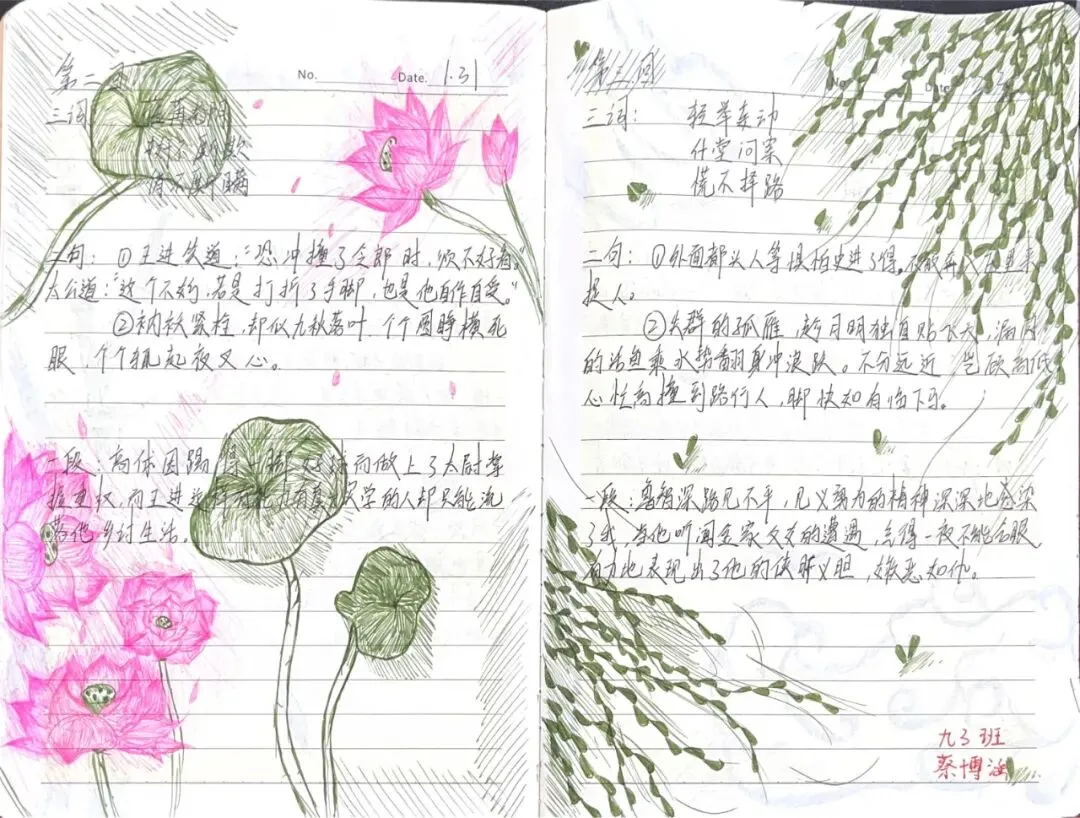 第二回
No. Date. 1.31
三词：
二句：①王进笑道：“恐冲撞了令郎时，须不好看。”
太公道：“这个不妨，若是打折了手脚，也是他自作自受。”
②衲袄紧拴，却似九秋落叶，个个圆睁横死
眼，个个辄起夜叉心。
一段：高俅因踢得一脚好球而做上了太尉掌
握重权，而王进这样
落他乡讨生活。
第三回
No. Date
三词： 轻举妄动
什堂问案
慌不择路
二句：①外面都头人等惧怕史进了得，不敢奔入
捉人。
②失群的孤雁，趁月明独自贴飞天，漏网
的活鱼乘水势翻身冲浪跃。不分远近，岂顾高低
心忙
撞到路行人，脚快
一段：鲁智深路见不平，见义勇为的精神深深地感染
了我，当他听闻金家父女的遭遇，气得一夜不能合眼，
有力地表现出了他的侠肝义胆，嫉恶如仇。
九3班
蔡博涵